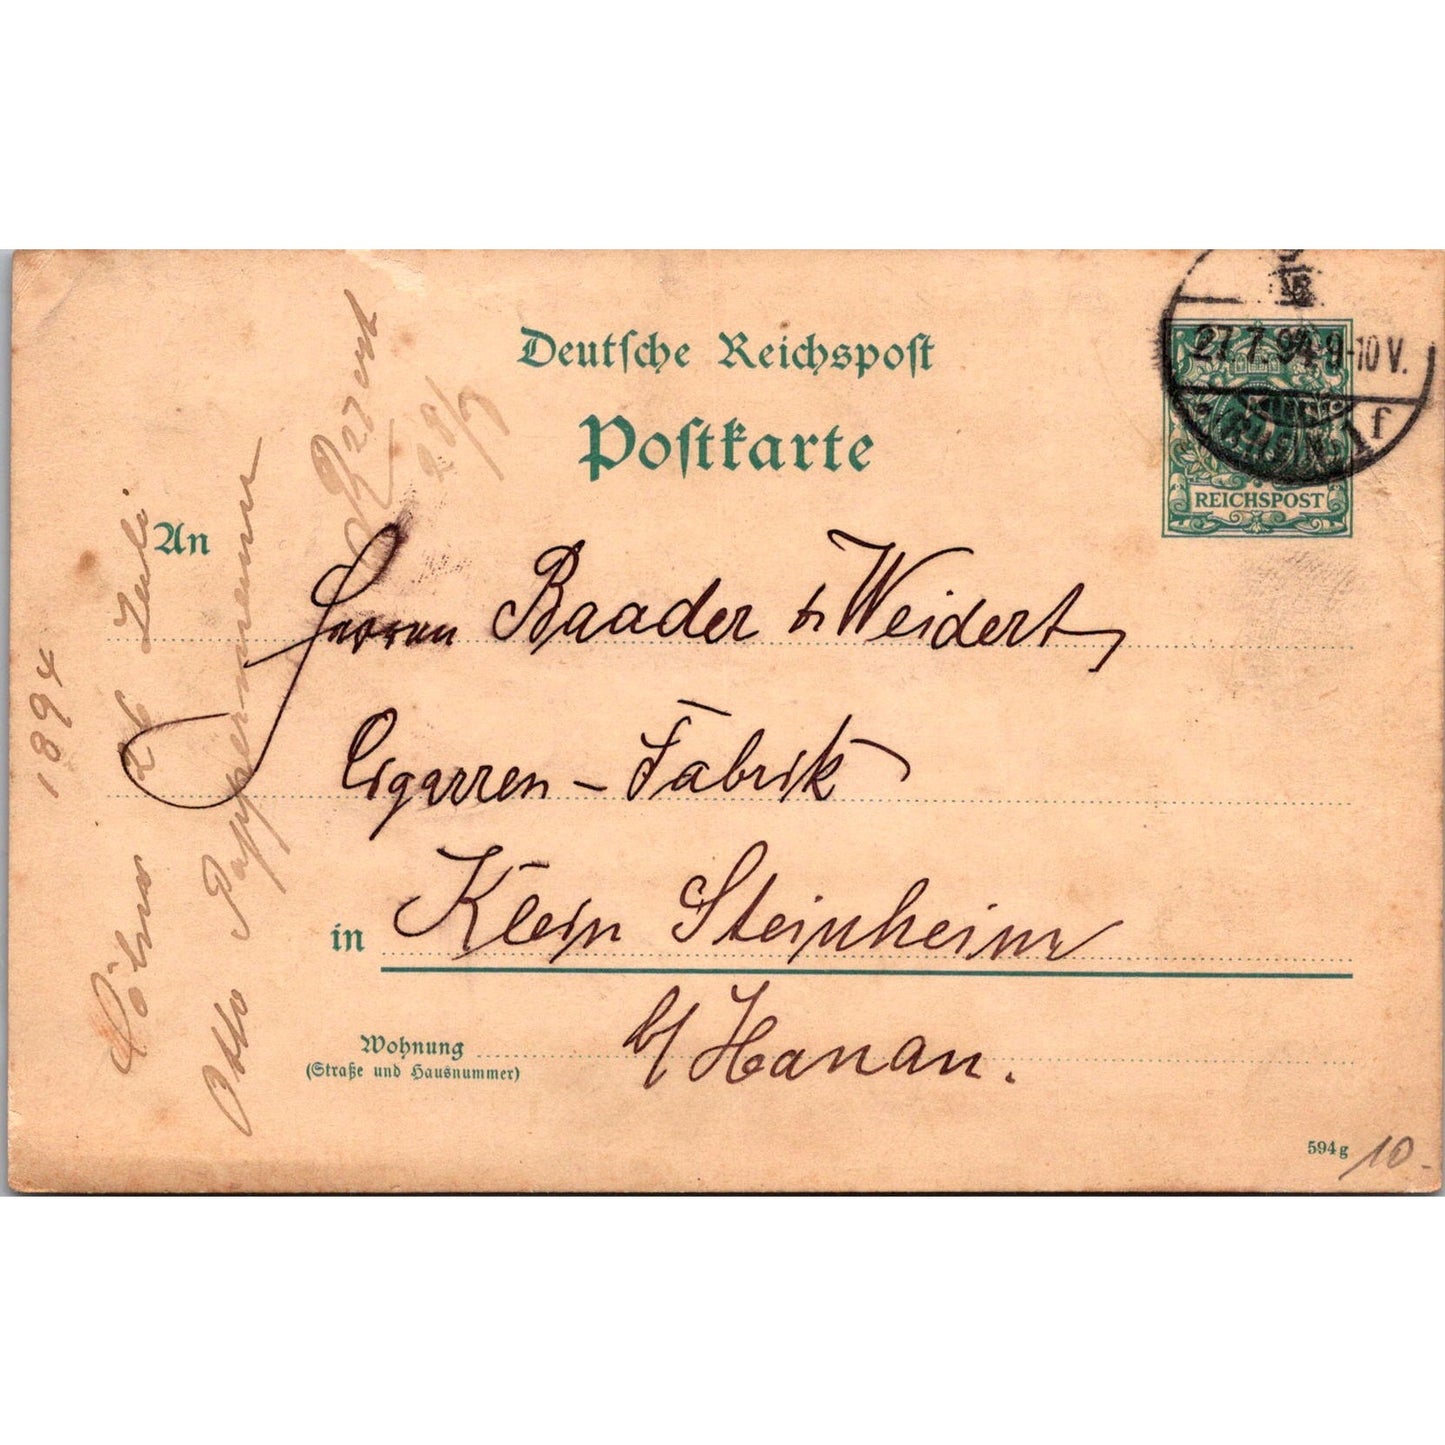 Deutsche Reichspost
Postkarte
27.7.94.9-10V.
1f
REICHSPOST
An
Herren Baader & Weidert,
Cigarren-Fabrik
in Klein Steinheim
b/Hanau.
Wohnung
(Straße und Hausnummer)
594g
10.-
1894
Cöln 26 Juli
Otto Pappermann
28/7